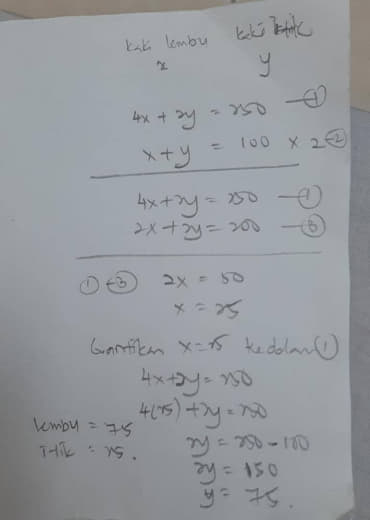 kaki lembu kaki itik
x y
4x + 2y = 250 — ①
x + y = 100 × 2 — ②
4x + 2y = 250 — ①
2x + 2y = 200 — ③
① - ③ 2x = 50
x = 25
Gantikan x = 25 kedalam ①
4x + 2y = 250
4(25) + 2y = 250
2y = 250 - 100
2y = 150
y = 75.
lembu = 75
itik = 25.